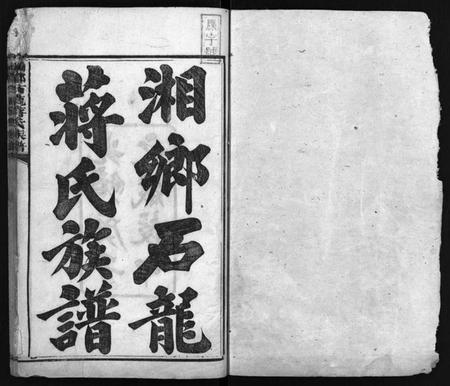 湘鄉石龍
蔣氏族譜